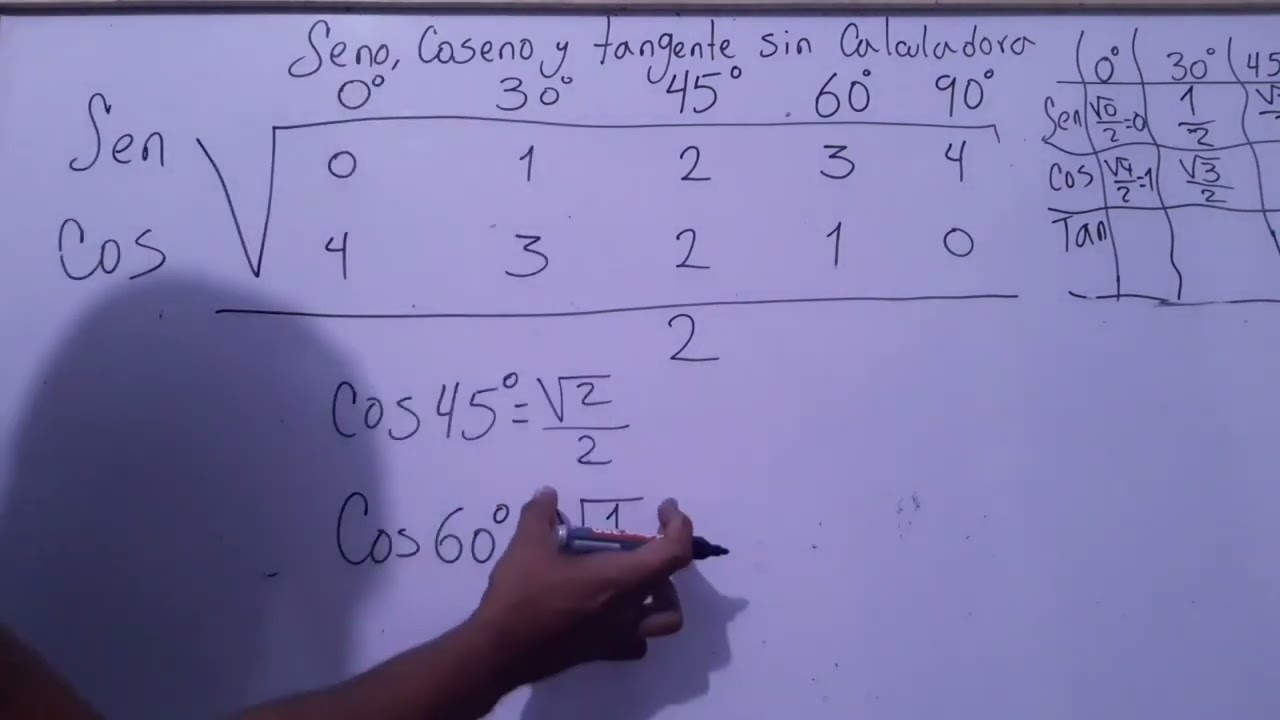 Seno, Coseno y tangente sin Calculadora
0° 30° 45° 60° 90°
Sen √ 0 1 2 3 4
Cos 4 3 2 1 0
2
Cos 45° = √2/2
Cos 60° √1
0° 30° 45
Sen √0/2=0 1/2
Cos √4/2=1 √3/2
Tan